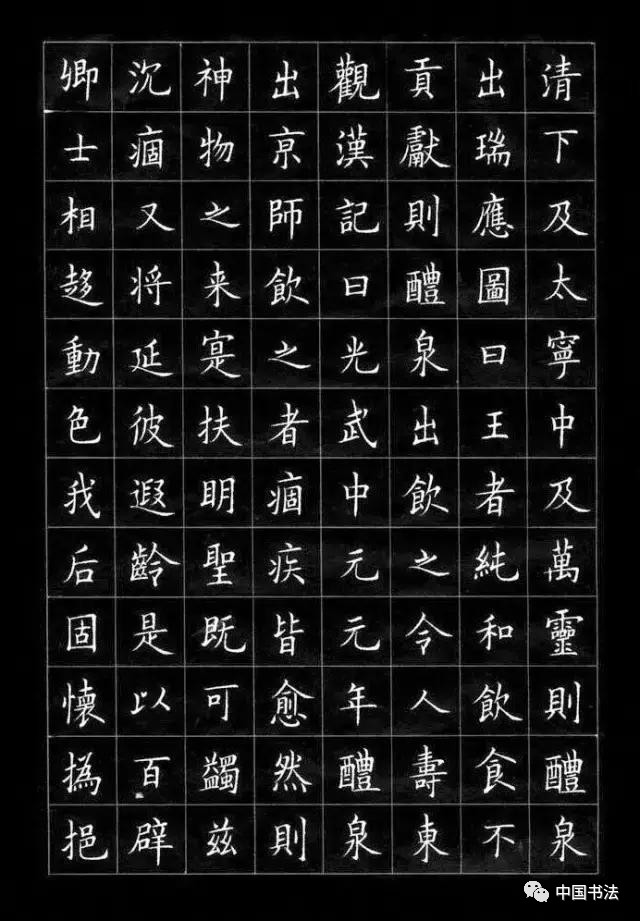 清下及太寧中及萬靈則醴泉
出瑞應圖曰王者純和飲食不
貢獻則醴泉出飲之令人壽東
觀漢記曰光武中元元年醴泉
出京師飲之者痼疾皆愈然則
神物之来寔扶明聖既可蠲兹
沉痼又将延彼遐齡是以百辟
卿士相趍動色我后固懷撝挹
中国书法